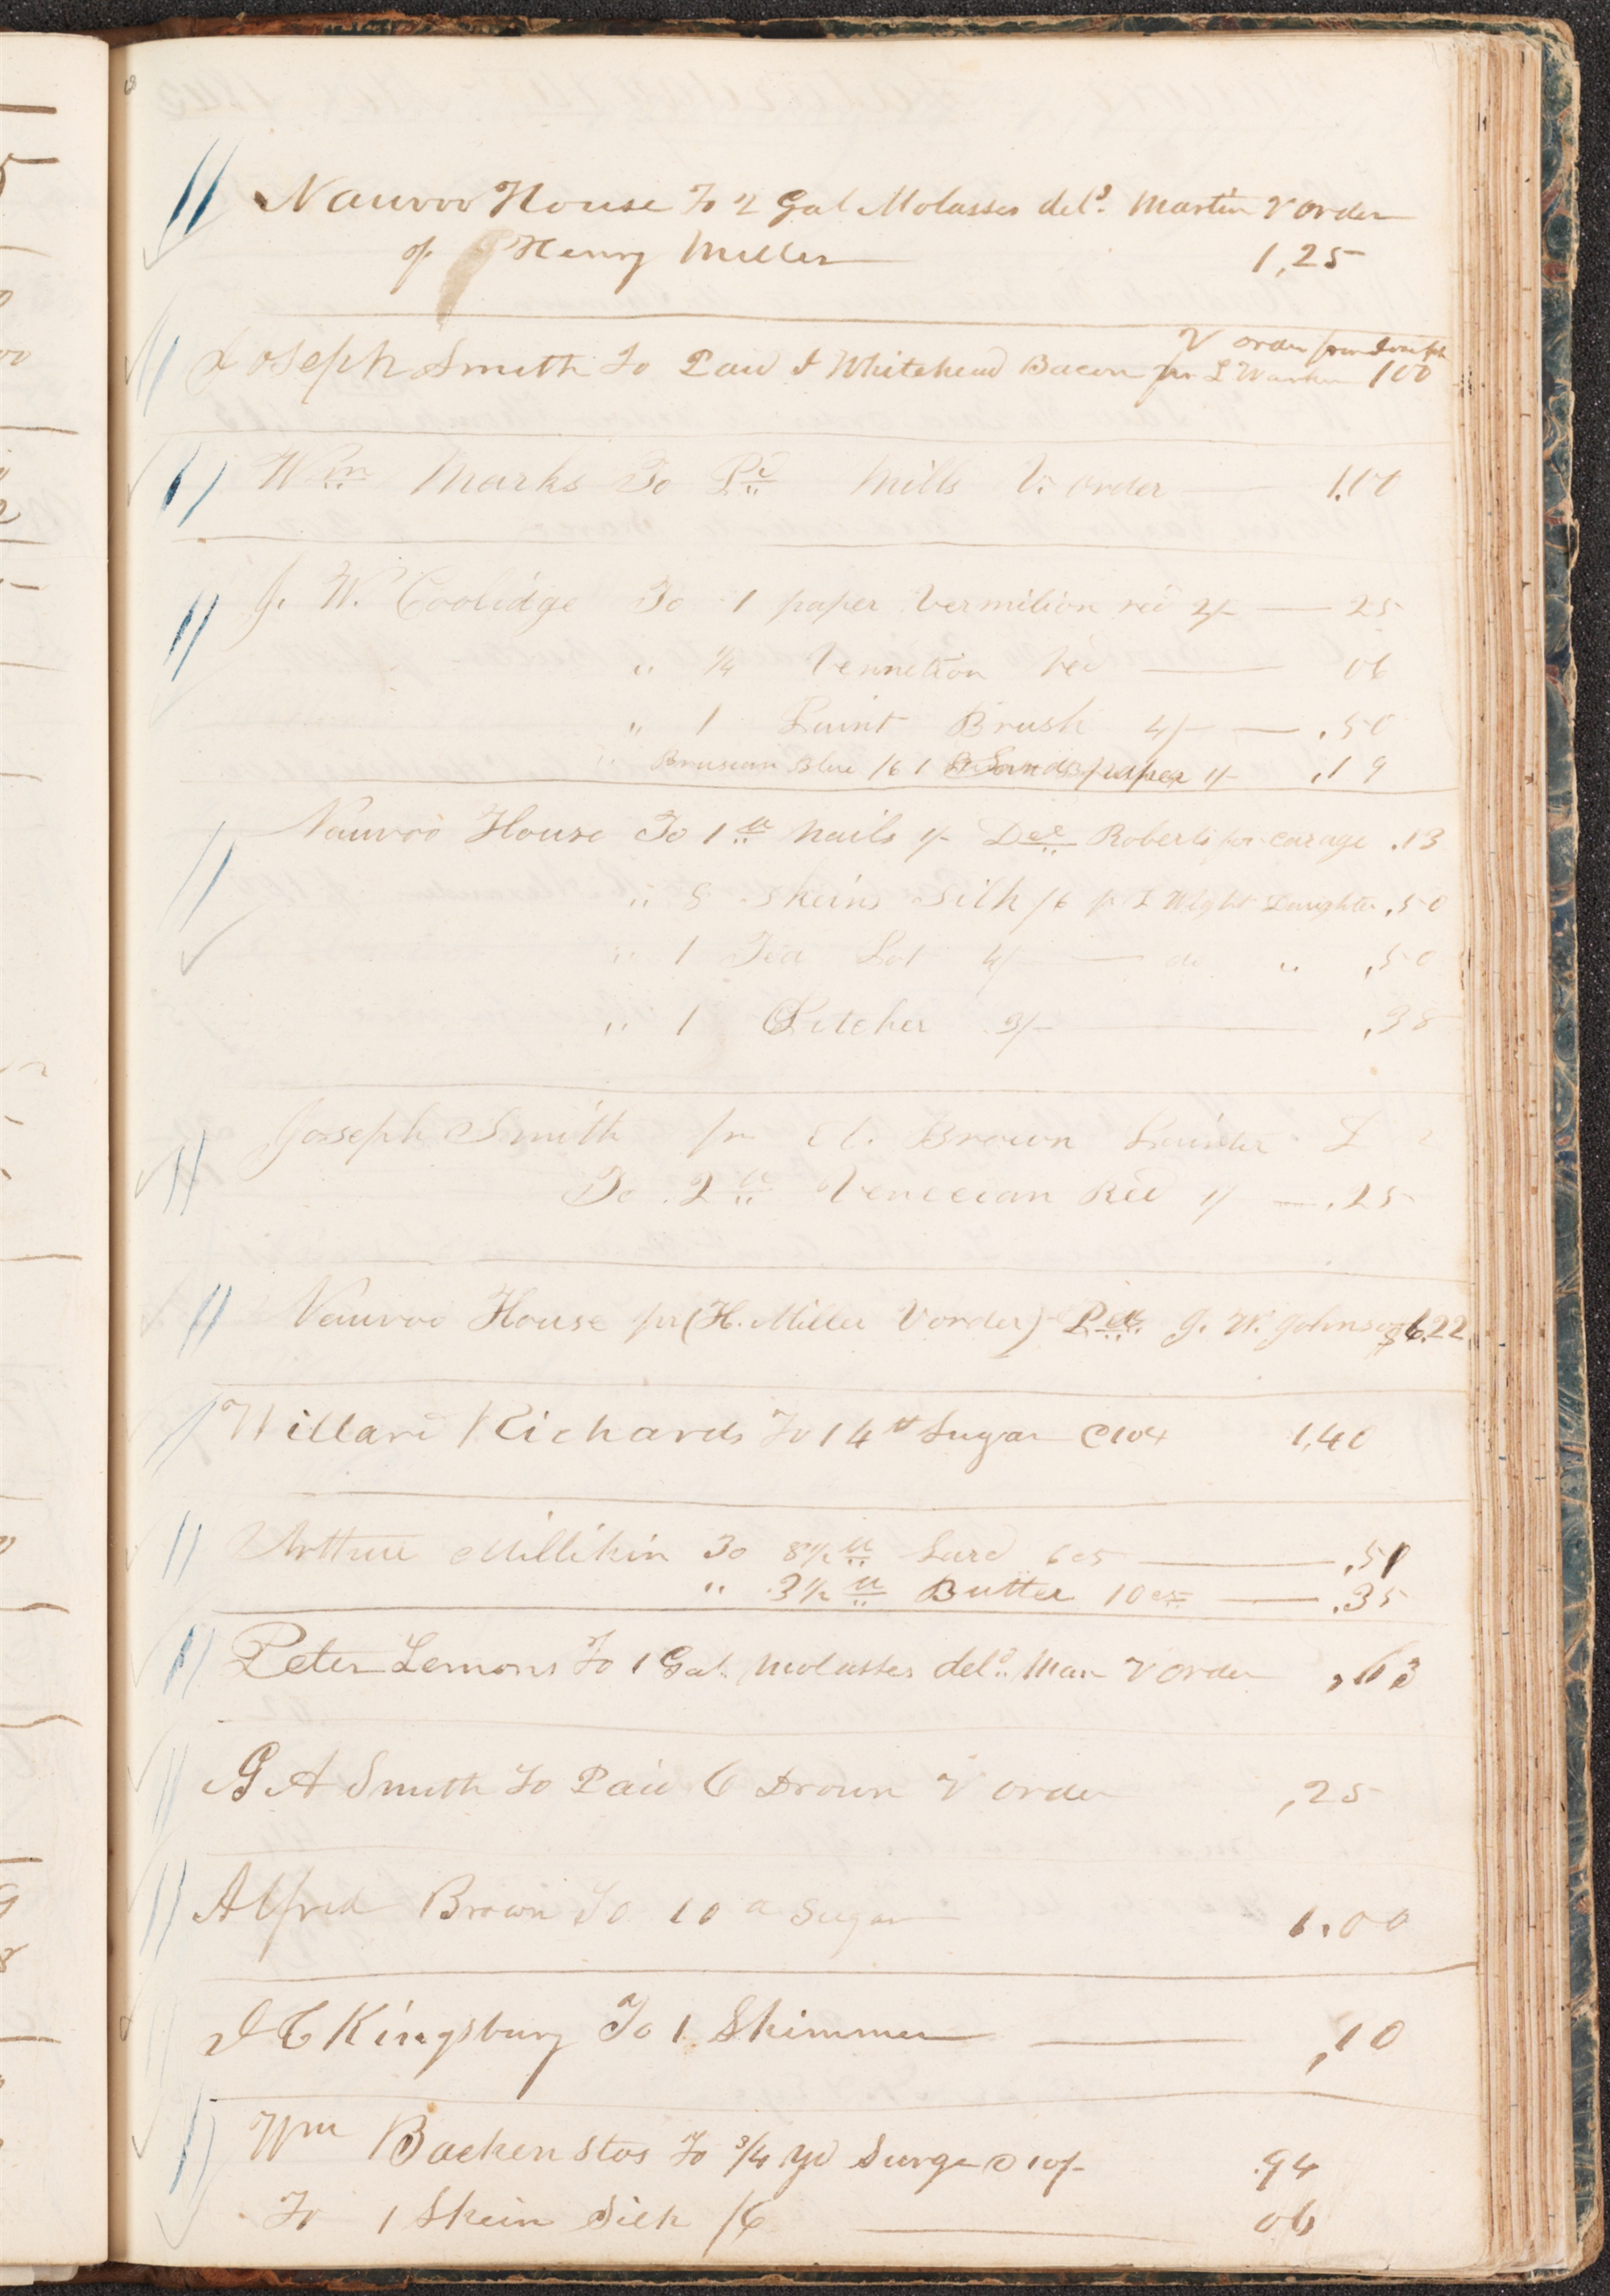 Nauvoo House To 2 Gal Molasses deld. Martin V order
of Henry Miller 1,25
V order from Joseph
Joseph Smith To Paid I Whitehead Bacon pr L Warken 100
Wm Marks To Pd Mills V. order 1.00
J. W. Coolidge To 1 paper Vermilion red 2/- 25
" 1/4 Vennetion red 06
" 1 Paint Brush 4/- .50
" Prusean Blue /6 1 Sand paper 1/- ,19
Nauvoo House To 1 lb nails 1/- Del Roberts for carage .13
" 8 Skeins Silk /6 pr L Wight Daughter ,50
" 1 Tea Pot 4/- do " ,50
" 1 Pitcher 3/- ,38
Joseph Smith pr A. Brown Painter
To 2 lb Venecian Red 1/- .25
Nauvoo House pr (H. Miller V order) Pd J. W. Johnson $6.22
Willard Richards To 14 lb Sugar @ 10c 1,40
Arthur Millikin To 8 1/2 lb Lard 6cs ,51
" 3 1/2 lb Butter 10cs .35
Peter Lemons To 1 Gal. Molasses deld. Man V order ,63
G A Smith To Paid C Brown V order ,25
Alfred Brown To 10 lb Sugar 1.00
J C Kingsbury To 1 Skimmer ,10
Wm Backenstos To 3/4 yd Surge @ 10/- .94
To 1 Skein Silk /6 06